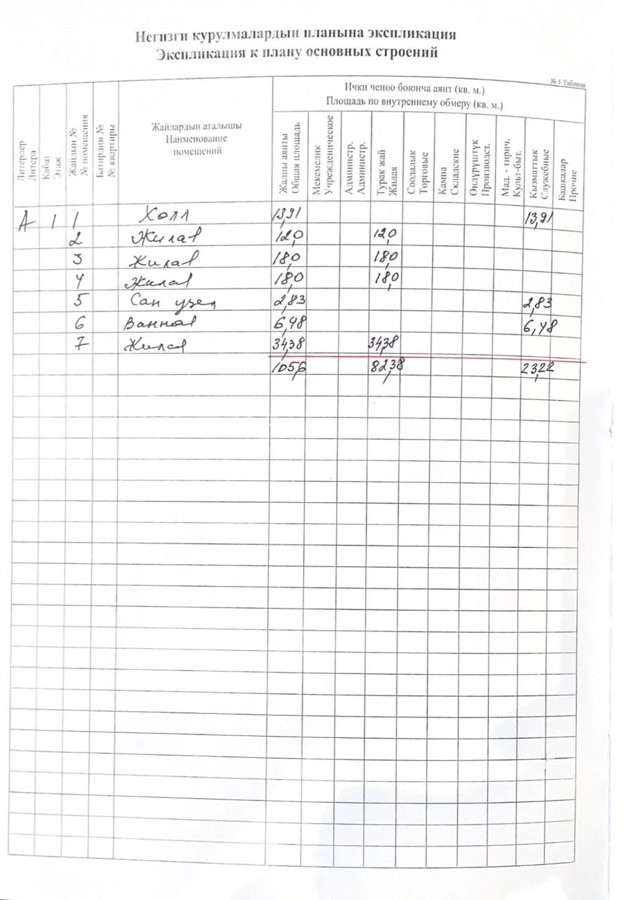 Негизги курулмалардын планына экспликация
Экспликация к плану основных строений
№ 1 Таблица
Литерлер
Литера
Кабат
Этаж
Жайдын №
№ помещения
Батирдин №
№ квартиры
Жайлардын аталышы
Наименование
помещений
Ички ченөө боюнча аянт (кв. м.)
Площадь по внутреннему обмеру (кв. м.)
Жалпы аянты
Общая площадь
Мекемелик
Учрежденическое
Администр.
Администр.
Турак жай
Жилая
Соодалык
Торговые
Кампа
Складские
Өндүрүштүк
Производст.
Мад. - тирич.
Культ-быт.
Кызматтык
Служебные
Башкалар
Прочие
А 1 1 Холл 13,91 13,91
2 Жилая 12,0 12,0
3 Жилая 18,0 18,0
4 Жилая 18,0 18,0
5 Сан узел 2,83 2,83
6 Ванная 6,48 6,48
7 Жилая 34,38 34,38
105,6 82,38 23,22